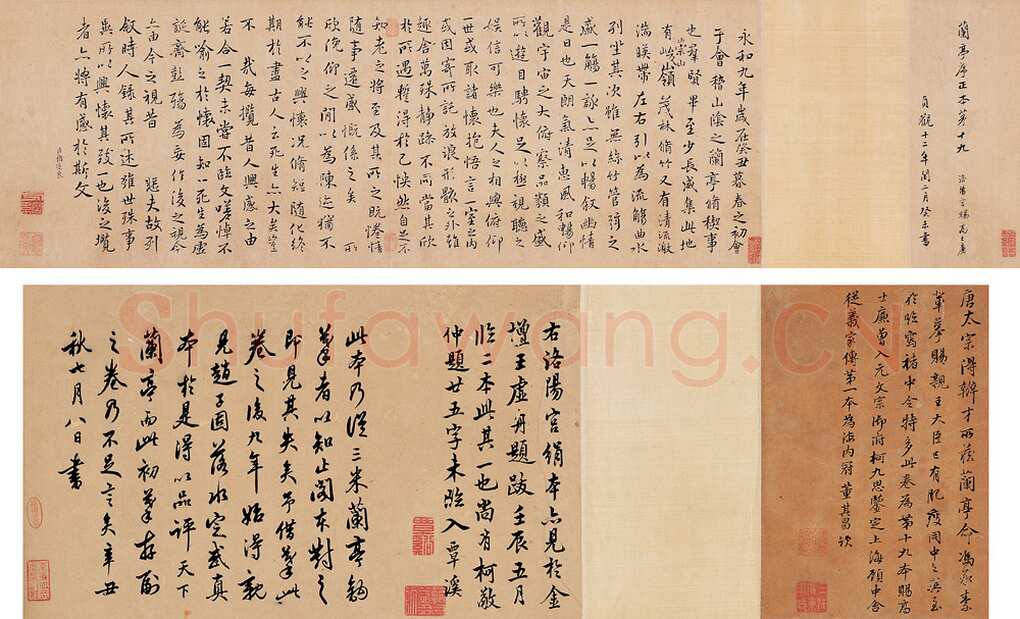 蘭亭序正本第十九 洛陽宮賜高士廉
貞觀十二年閏二月癸未書
永和九年歲在癸丑暮春之初會
于會稽山陰之蘭亭脩稧事
也羣賢畢至少長咸集此地
有崇山峻嶺茂林脩竹又有清流激
湍暎帶左右引以為流觴曲水
列坐其次雖無絲竹管弦之
盛一觴一詠亦足以暢敘幽情
是日也天朗氣清惠風和暢仰
觀宇宙之大俯察品類之盛
所以遊目騁懷足以極視聽之
娛信可樂也夫人之相與俯仰
一世或取諸懷抱悟言一室之內
或因寄所託放浪形骸之外雖
趣舍萬殊靜躁不同當其欣
於所遇蹔得於己怏然自足不
知老之將至及其所之既惓情
隨事遷感慨係之矣 所
欣俛仰之間以為陳迹猶不
能不以之興懷況脩短隨化終
期於盡古人云死生亦大矣豈
不 哉每攬昔人興感之由
若合一契未嘗不臨文嗟悼不
能喻之於懷固知一死生為虛
誕齊彭殤為妄作後之視今
亦由今之視昔 悲夫故列
敘時人錄其所述雖世殊事
異所以興懷其致一也後之攬
者亦將有感於斯文
臣褚遂良
唐太宗得辯才所藏蘭亭命馮承素
輩摹賜親王大臣已有肥瘦之異至
於臨寫褚中令特多此卷為第十九本賜高
士廉曾入元文宗御府柯九思鑒定上海顧中舍
從義家傳第一本為海內冠董其昌識
右洛陽宮絹本亦見於金
壇王虛舟題跋壬辰五月
臨二本此其一也尚有柯敬
仲題廿五字未臨入 覃溪
此本乃從三米蘭亭鉤
摹者以知止閣本對之
即見其失矣予借摹此
卷之後九年始得親
見趙子固落水定武真
本於是得以品評天下
蘭亭而此初摹存副
之卷乃不足言矣辛丑
秋七月八日書
Shufawang.c